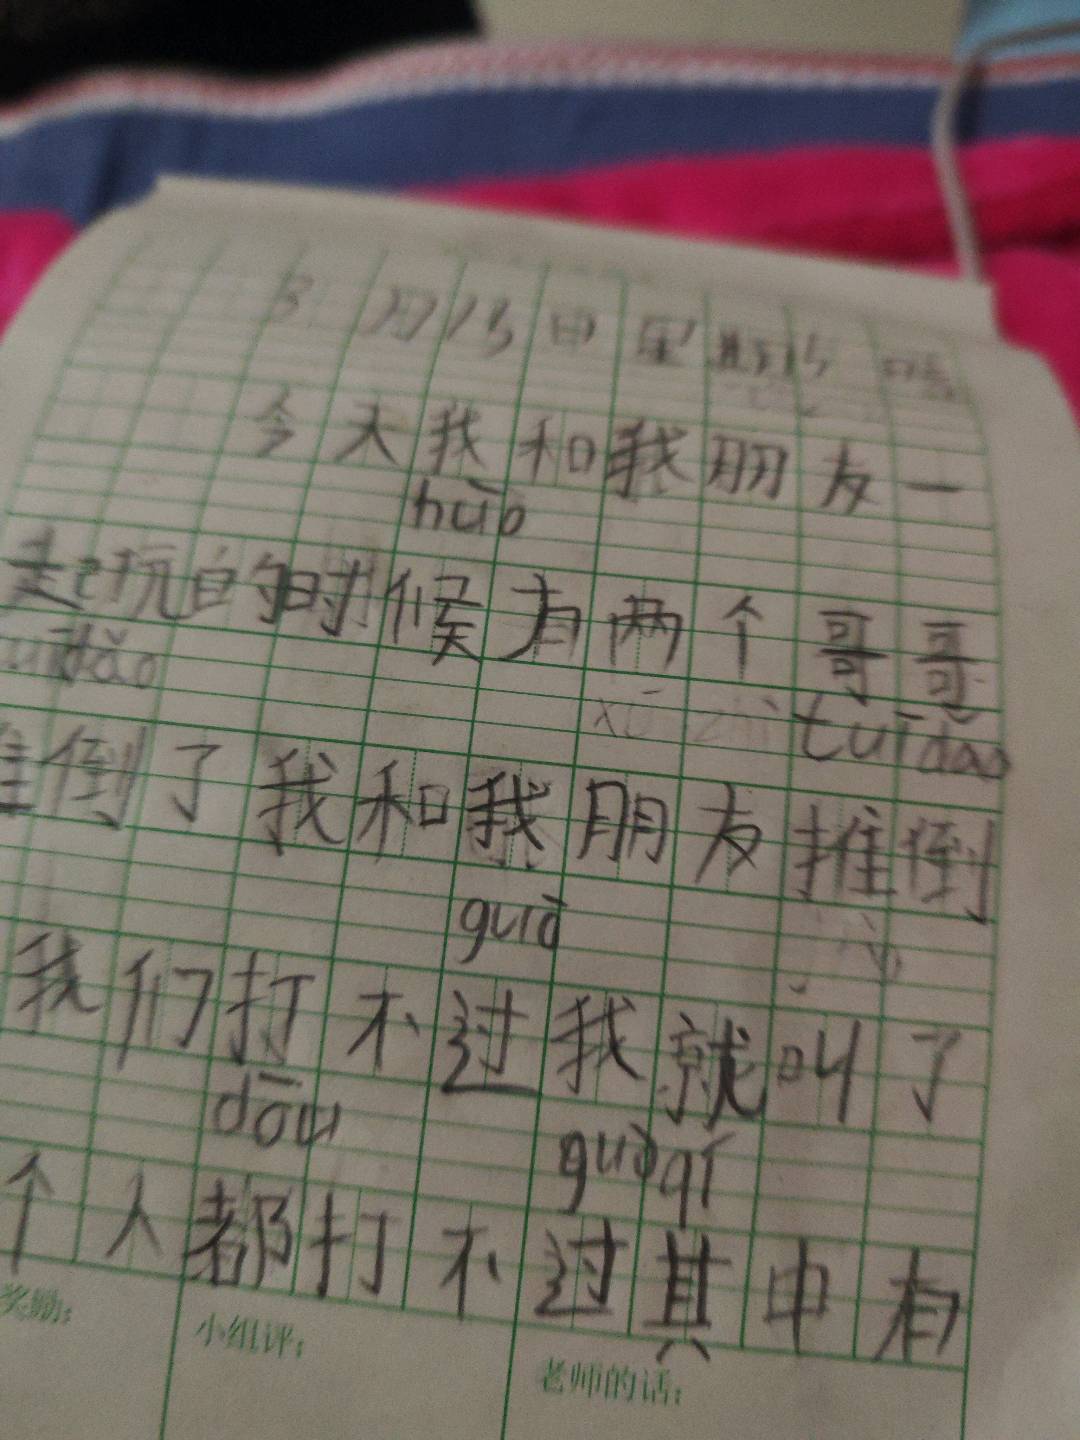 3月13日星期5 晴
今天我和我朋友一
huò
起玩的时候有两个哥哥
dǎo xū zhì tuī dǎo
推倒了我和我朋友推倒
guò
我们打不过我就叫了
dōu guò qí
个人都打不过其中有
奖励：
小组评：
老师的话：